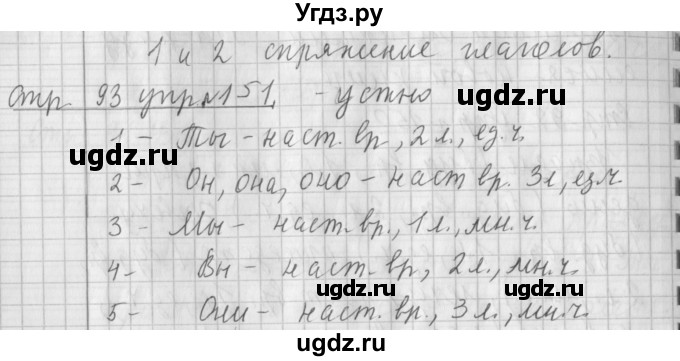 Угдз.ру
1 и 2 спряжение глаголов.
стр. 93 упр. 151 - устно
ugdz.ru
1 - Ты - наст. вр., 2 л., ед. ч.
ugdz.ru
2 - Он, она, оно - наст вр. 3 л., ед.ч.
3 - Мы - наст. вр., 1 л., мн. ч.
4 - Вы - наст. вр., 2 л., мн. ч.
ugdz.ru ugdz.ru
5 - Они - наст. вр., 3 л., мн. ч.
ugdz.ru